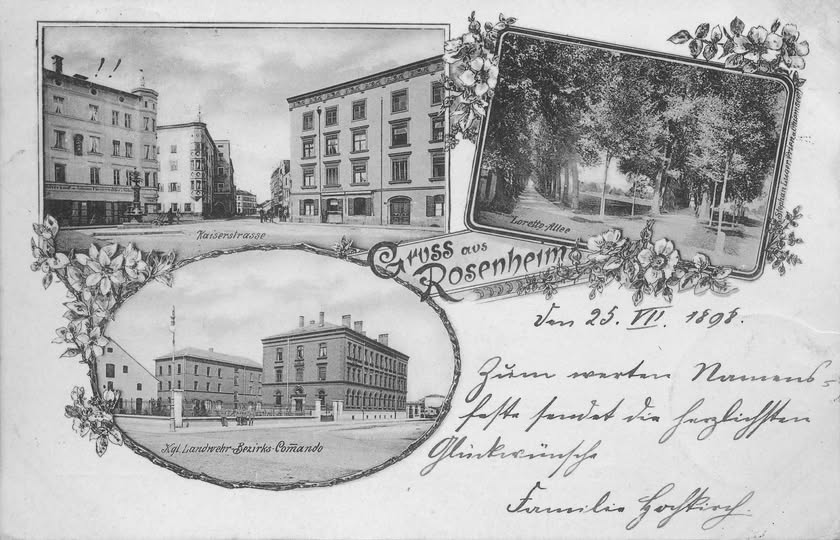 Kaiserstrasse
Loretto-Allee
Gruss aus
Rosenheim
Kgl. Landwehr-Bezirks-Com̄ando
Den 25. VII. 1898.
Zum werten Namens-
feste sendet die herzlichsten
Glückwünsche
Familie Hochkirch.